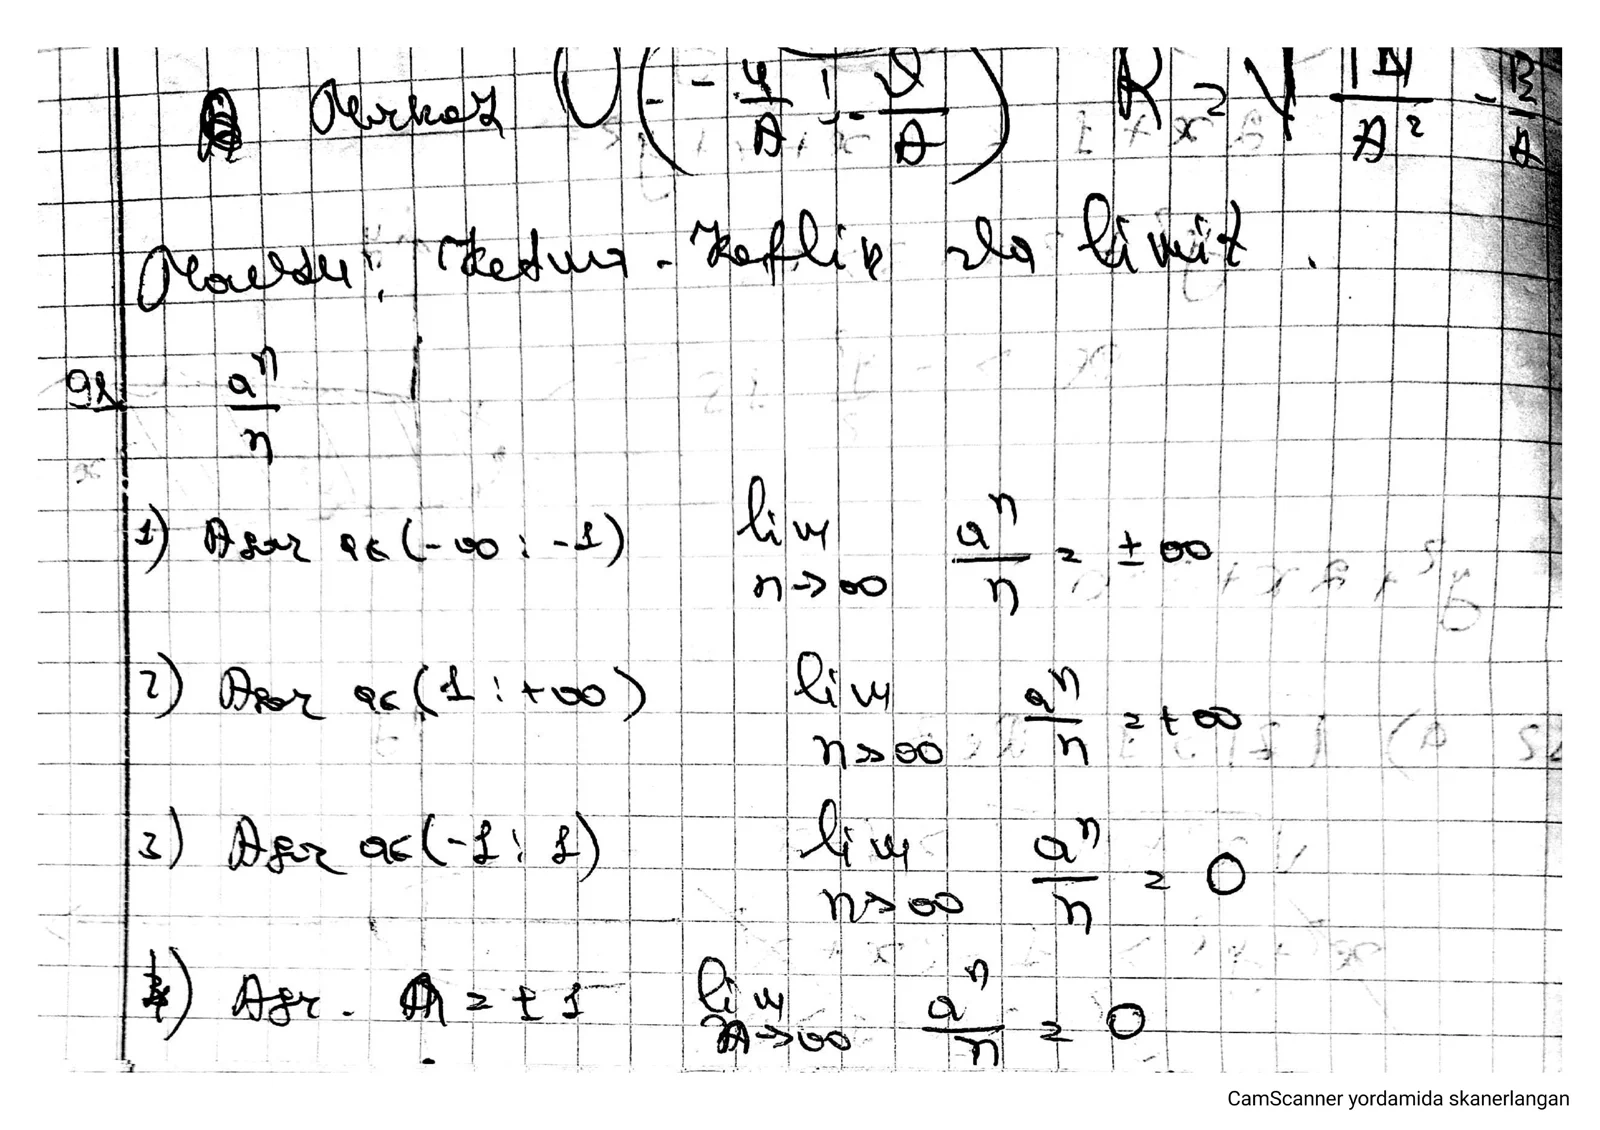 Merkaz O(- 4/A ; - D/A) R = √ |D|/A² - B/A
Mavzu: Ketma-ketlik va limit.
91 aⁿ/n
1) Agar a∈(-∞ ; -1) lim n→∞ aⁿ/n = ±∞
2) Agar a∈(1 ; +∞) lim n→∞ aⁿ/n = +∞
3) Agar a∈(-1 ; 1) lim n→∞ aⁿ/n = 0
4) Agr. a = ±1 lim n→∞ aⁿ/n = 0
CamScanner yordamida skanerlangan